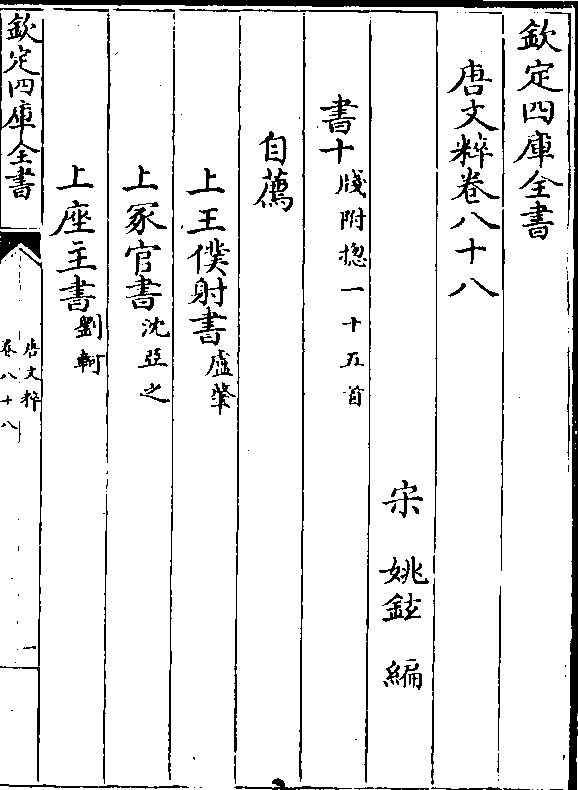 欽定四庫全書
唐文粹卷八十八
宋 姚鉉 編
書十牋附摠一十五首
自薦
上王僕射書盧肇
上冢官書沈亞之
上座主書劉軻
欽定四庫全書
唐文粹
卷八十八
一